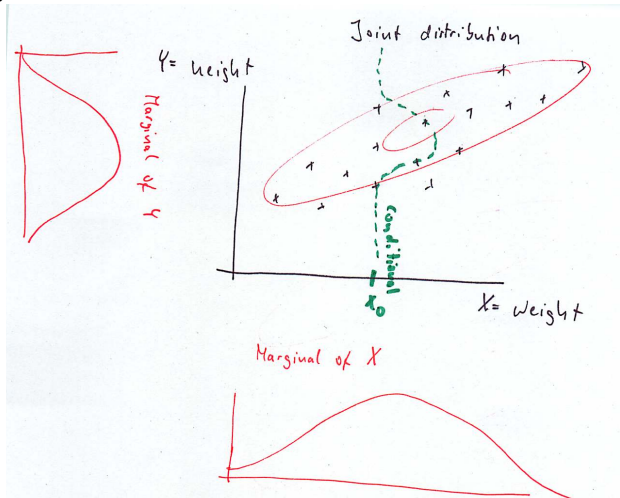 Joint distribution
Y= height
Marginal of Y
Conditional
x0
X= Weight
Marginal of X